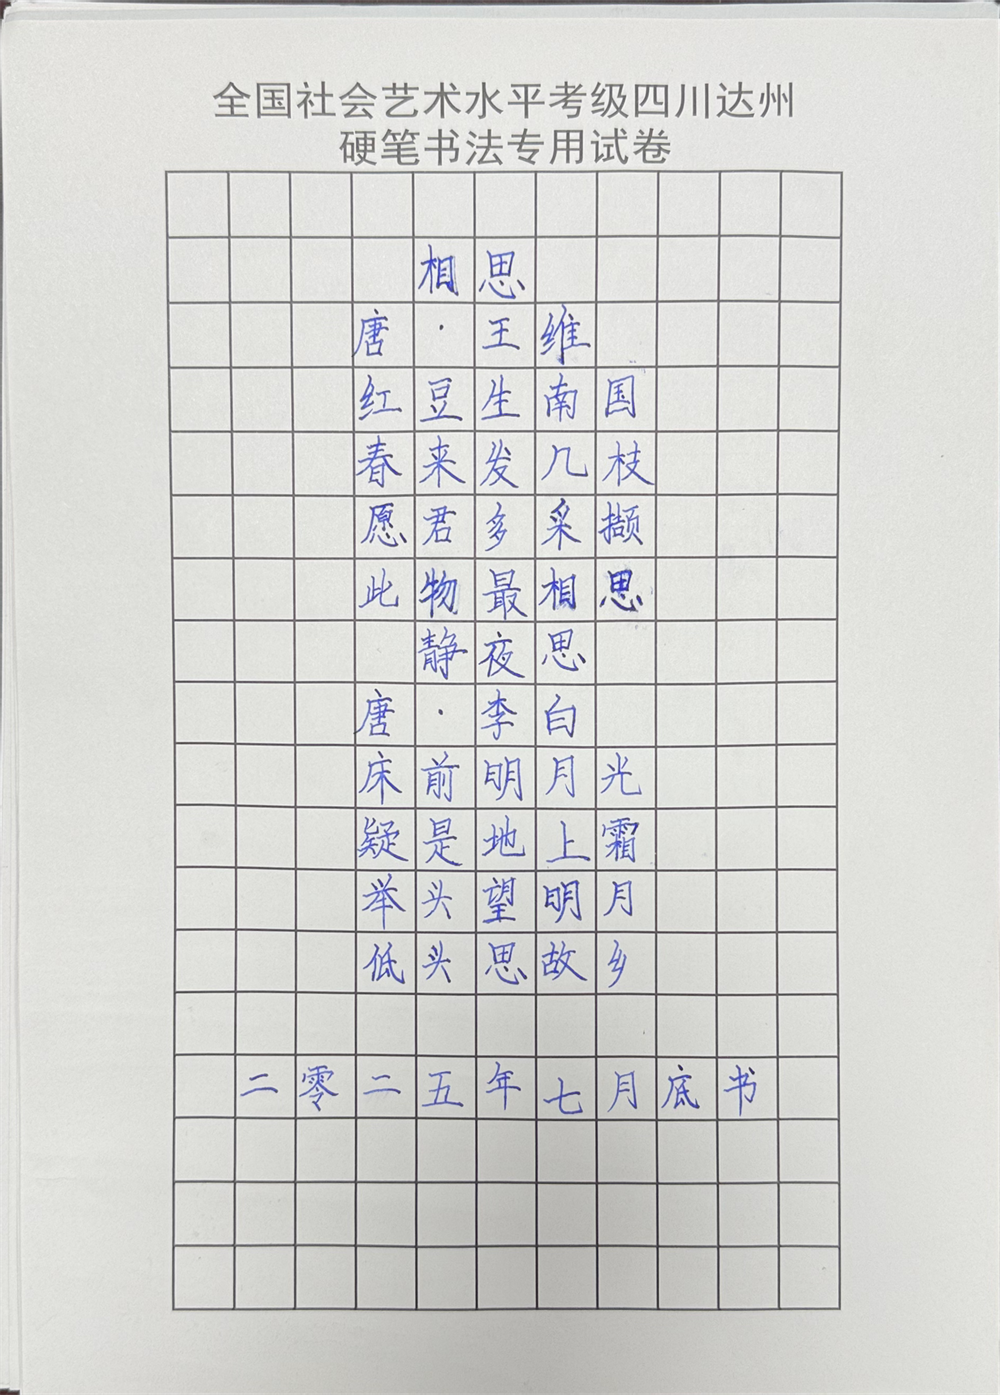 全国社会艺术水平考级四川达州
硬笔书法专用试卷
相思
唐·王维
红豆生南国
春来发几枝
愿君多采撷
此物最相思
静夜思
唐·李白
床前明月光
疑是地上霜
举头望明月
低头思故乡
二零二五年七月底书